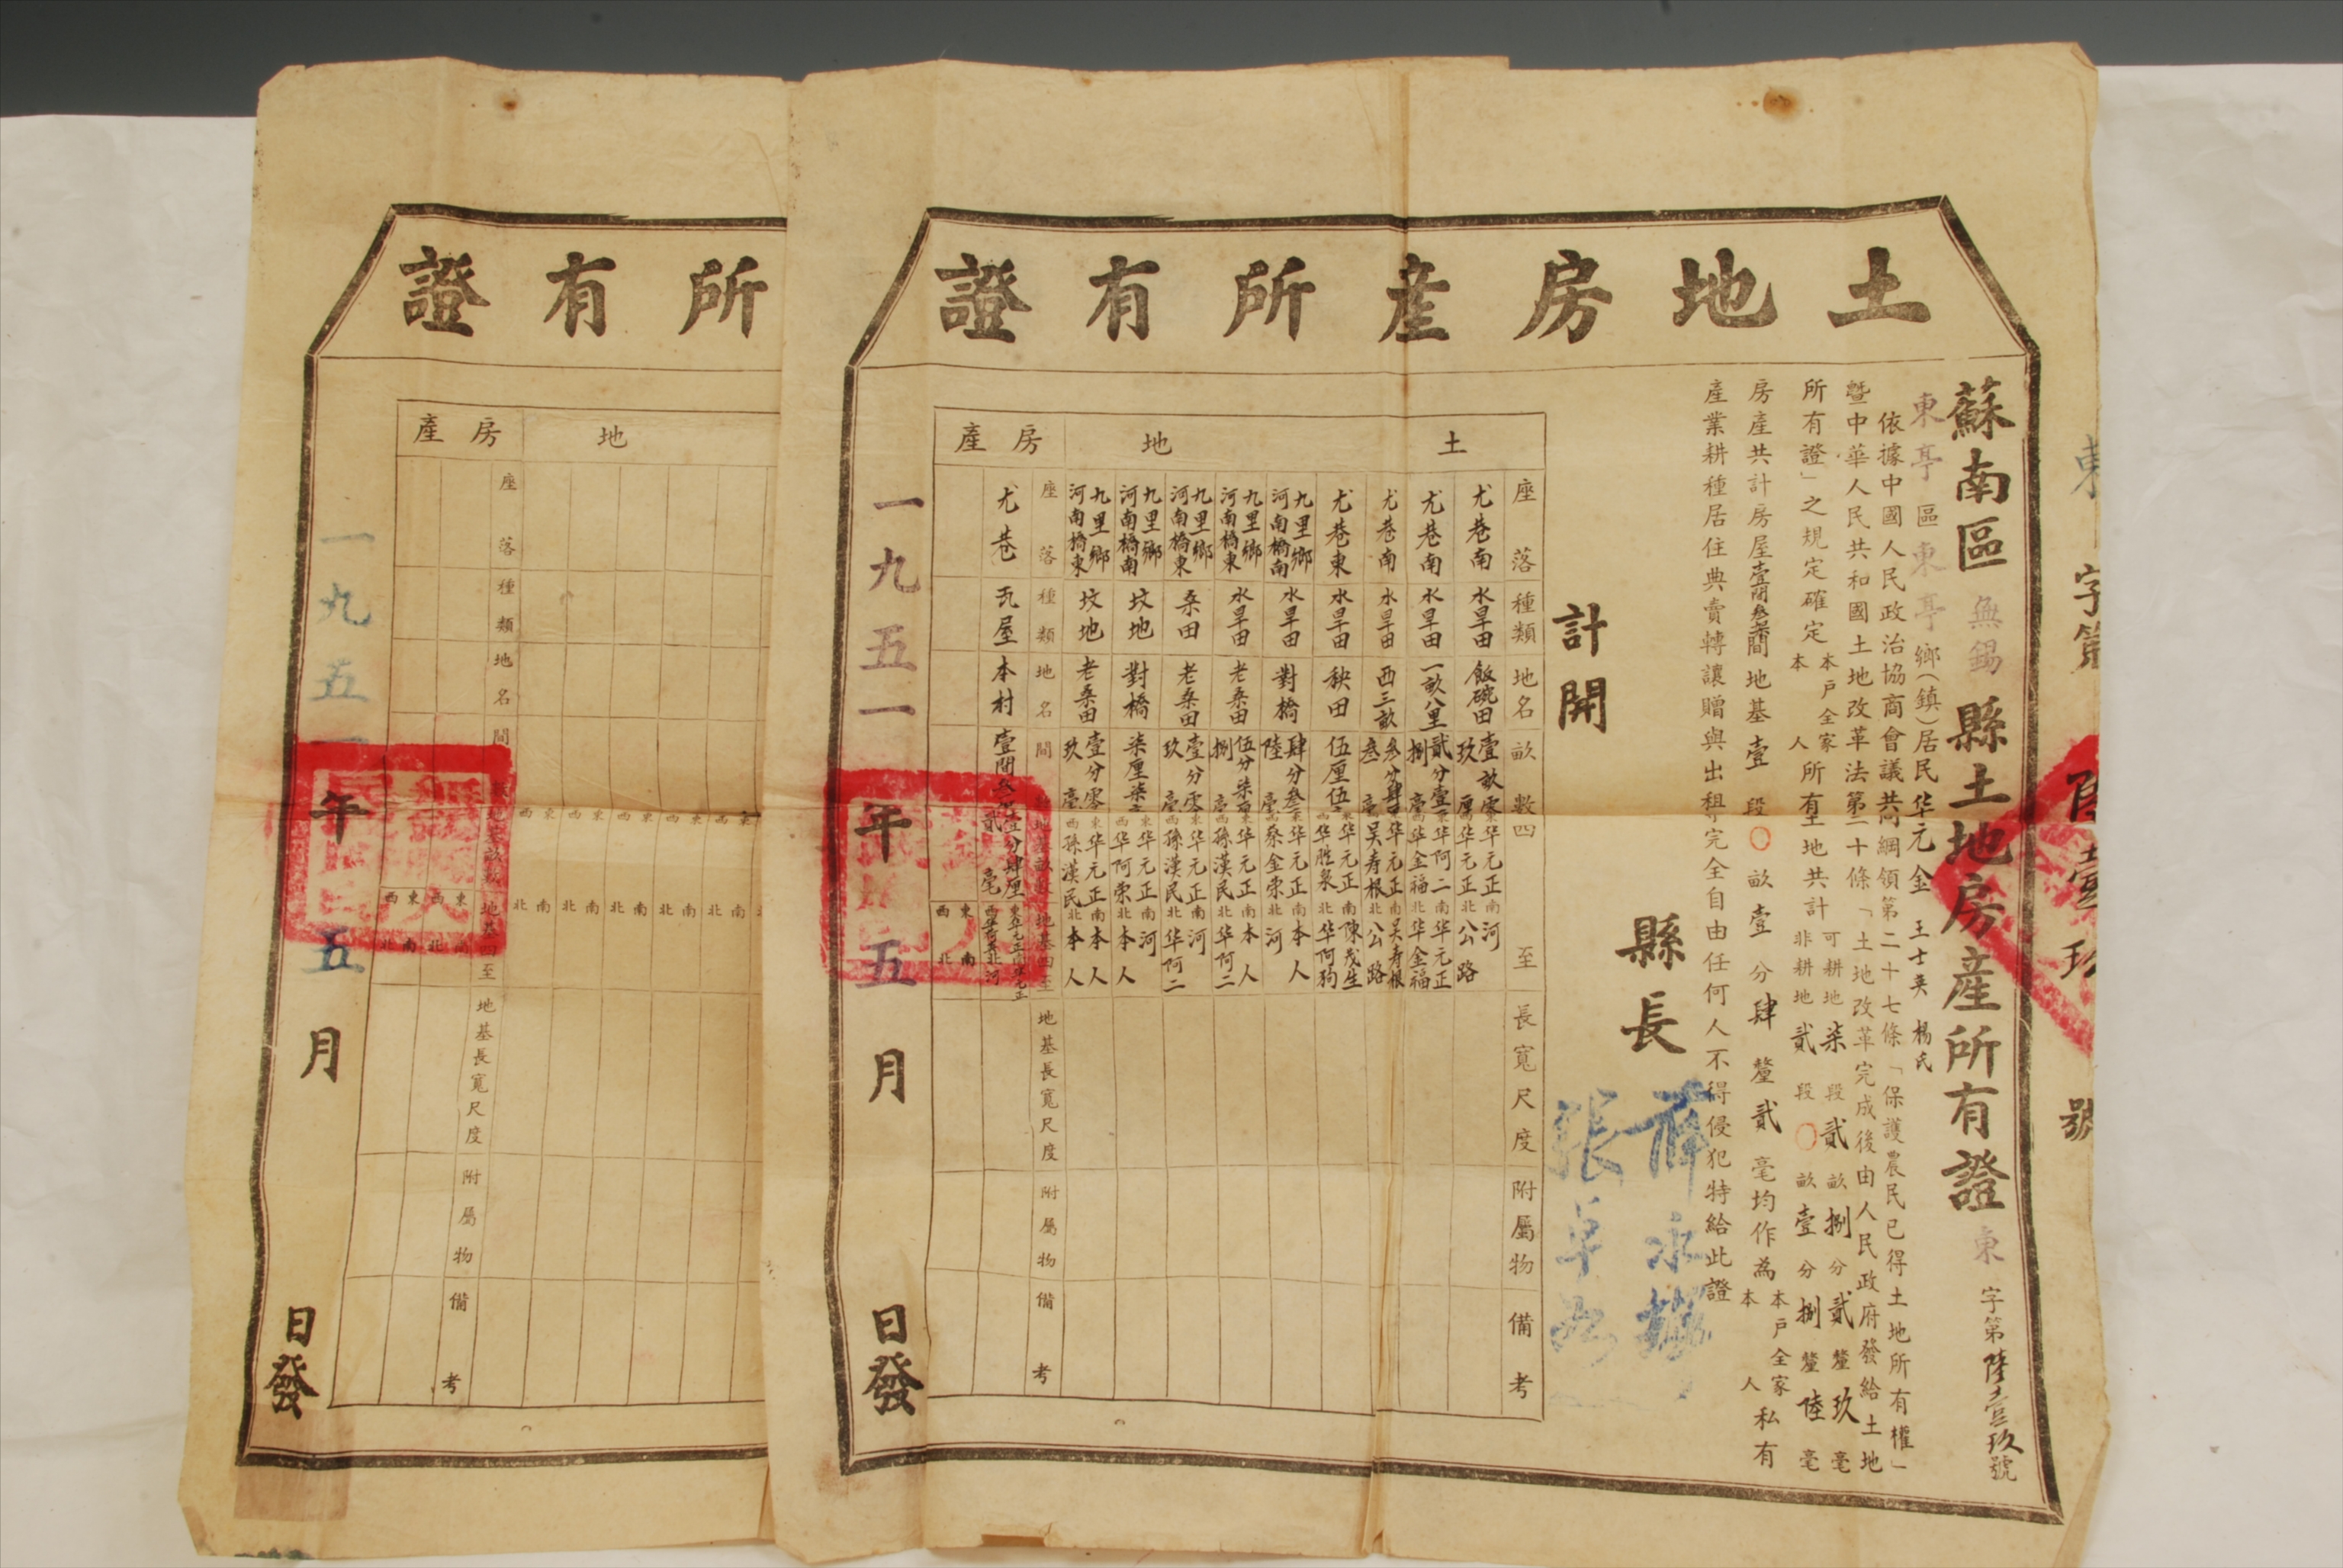 土地房產所有證
東 字第 壹玖 號
蘇南區無錫縣土地房産所有證 東字第陸壹玖號
東亭區東亭鄉(鎮)居民华元金 王士英 楊氏
依據中國人民政治協商會議共同綱領第二十七條「保護農民已得土地所有權」
暨中華人民共和國土地改革法第三十條「土地改革完成後由人民政府發給土地
所有證」之規定確定本戶全家本人所有土地共計可耕地柒段貳畝捌分貳釐玖毫非耕地貳段〇畝壹分捌釐陸毫
房產共計房屋壹間叁間地基壹段〇畝壹分肆釐貳毫均作為本戶全家本人私有
產業耕種居住典賣轉讓贈與出租等完全自由任何人不得侵犯特給此證
縣長
薛永輝
張卓如
計開
土地
座落 種類 地名 畝數 四至 長寬尺度 附屬物 備考
尤巷南 水旱田 飯硫田 壹畝零 玖厘 東华元正 西华元正 南河 北公路
尤巷南 水旱田 一畝八里 貳分壹 捌毫 东华阿二 西华金福 南华元正 北华金福
尤巷南 水旱田 西三畝 叁分肆 叁毫 东华元正 西吴寿根 南吴寿根 北公路
尤巷東 水旱田 秧田 伍厘伍 东华元正 西华胜泉 南陳茂生 北华阿狗
九里鄉河南橋南 水旱田 對橋 肆分叁 陸毫 东华元正 西蔡金荣 南本人 北河
九里鄉河南橋東 水旱田 老桑田 伍分柒 捌毫 东华元正 西孫漢民 南本人 北华阿二
九里鄉河南橋東 桑田 老桑田 壹分零 玖毫 东华元正 西孫漢民 南河 北华阿二
九里鄉河南橋南 坟地 對橋 柒厘柒 东华元正 西华阿荣 南河 北本人
九里鄉河南橋東 坟地 老桑田 壹分零 玖毫 东华元正 西孫漢民 南本人 北本人
房產
座落 種類 地名 間 地基四至 地基長寬尺度 附屬物 備考
尤巷 瓦屋 本村 壹間 壹分肆厘貳毫 北河
東 西 南 北
一九五一年五月 日發
所有證
地
房產
座落 種類 地名 間 地基四至 地基長寬尺度 附屬物 備考
東 西 南 北
一九五一年五月 日發